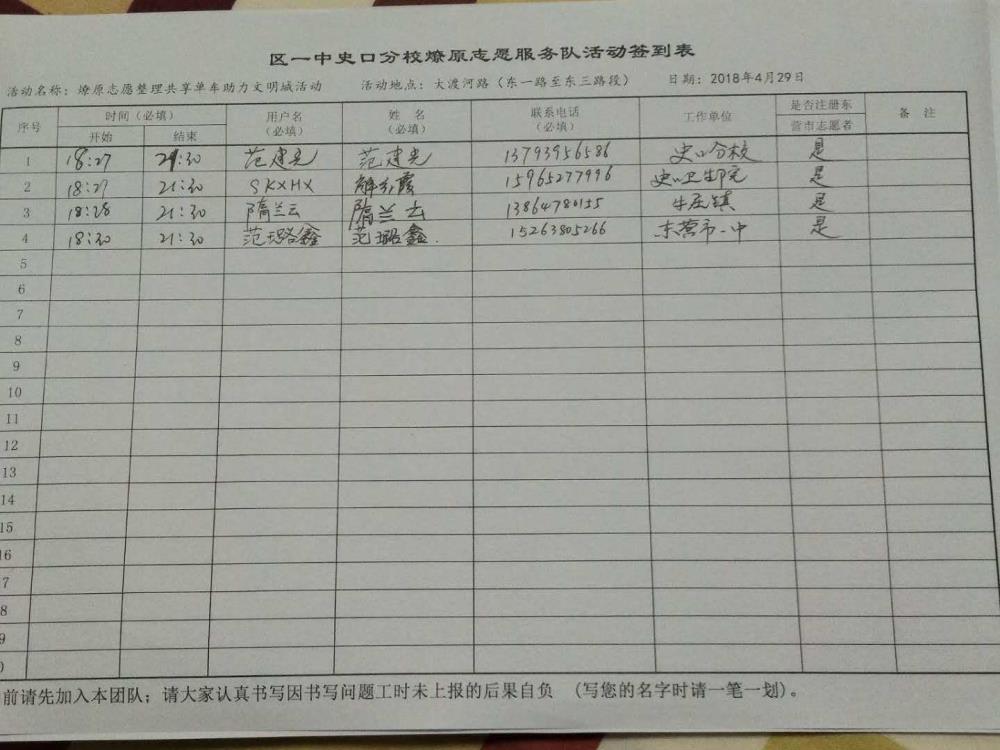 区一中史口分校燎原志愿服务队活动签到表
活动名称：燎原志愿整理共享单车助力文明城活动 活动地点：大渡河路（东一路至东三路段） 日期：2018年4月29日
序号 时间（必填） 用户名（必填） 姓 名（必填） 联系电话（必填） 工作单位 是否注册东营市志愿者 备 注
开始 结束
1 18:27 21:30 范建光 范建光 13793956586 史口分校 是
2 18:27 21:30 SKXHX 解红霞 15965277996 史口卫生院 是
3 18:28 21:30 隋兰云 隋兰云 13864780155 牛庄镇 是
4 18:30 21:30 范璐鑫 范璐鑫 15263805266 东营市一中 是
5
6
7
8
9
10
11
12
13
14
15
16
7
8
9
0
前请先加入本团队；请大家认真书写因书写问题工时未上报的后果自负 （写您的名字时请一笔一划）。